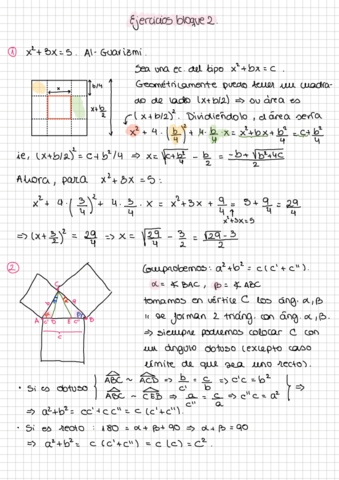 Ejercicios bloque 2.
① x² + 5x = 5. Al-Guarizmi.
Sea una ec. del tipo x² + bx = c.
Geométricamente puedo tener un cuadra-
do de lado (x+b/2) ⇒ su área es
(x+b/2)². Dividiéndolo, el área sería
x² + 4·(b/4)² + 4·b/4·x = x² + bx + b²/4 = c + b²/4
x
b/4
x+b/2
ie, (x+b/2)² = c + b²/4 ⇒ x = √(c+b²/4) − b/2 = (−b+√(b²+4c))/2
Ahora, para x² + 3x = 5:
x² + 4·(3/4)² + 4·3/4·x = x² + 3x + 9/4 = 5 + 9/4 = 29/4
x²+3x=5
⇒ (x+3/2)² = 29/4 ⇒ x = √(29/4) − 3/2 = (√29 − 3)/2
② Comprobemos: a² + b² = c(c' + c'').
α = ∢ BAC, β = ∢ ABC
tomamos en vértice C los áng. α, β
y se forman 2 triáng. con áng. α, β.
⇒ siempre podremos colocar C con
un ángulo obtuso (excepto caso
límite de que sea uno recto).
C
A D E B
c
· Si es obtuso { ABC ~ ACD ⇒ b/c' = c/b ⇒ c'c = b²
ABC ~ CEB ⇒ a/c'' = c/a ⇒ c''c = a² } ⇒
⇒ a² + b² = cc' + cc'' = c(c' + c'').
· Si es recto: 180 = α + β + 90 ⇒ α + β = 90
⇒ a² + b² = c(c' + c'') = c(c) = c².